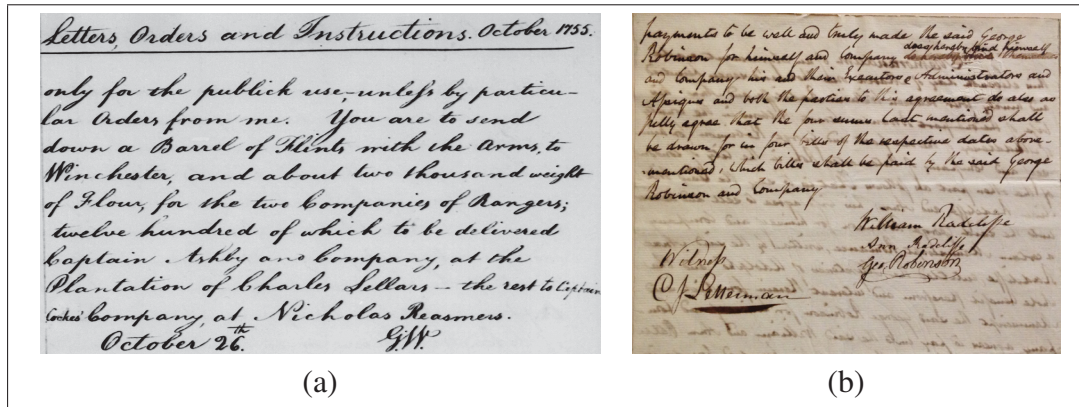 Letters, Orders and Instructions. October 1755.
only for the publick use, unless by particu-
lar Orders from me. You are to send
down a Barrel of Flints with the Arms, to
Winchester, and about two thousand weight
of Flour, for the two Companies of Rangers;
twelve hundred of which to be delivered
Captain Ashby and Company, at the
Plantation of Charles Sellars – the rest to Captain
Cockes' Company, at Nicholas Reasmers.
October 26th. G.W.
(a)
payments to be well and truly made the said George
Robinson for himself and Company
does hereby bind himself
and Company his and their Executors, Administrators and
Assigns and both the parties to this agreement do also
fully agree that the four sums last mentioned shall
be drawn for in four bills of the respective dates above-
-mentioned, which bills shall be paid by the said George
Robinson and Company
William Radclife
Ann Radcliffe
Geo. Robinson
Witness
(b)